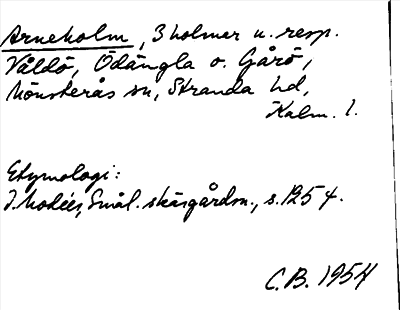 Arneholm, 3 holmar u. resp.
Våldö, Ödängla o. Gårö,
Mönsterås sn, Stranda hd,
Kalm. l.
Etymologi:
J. Modéer, Smål. skärgårdsn., s. 125 f.
C.B. 1954